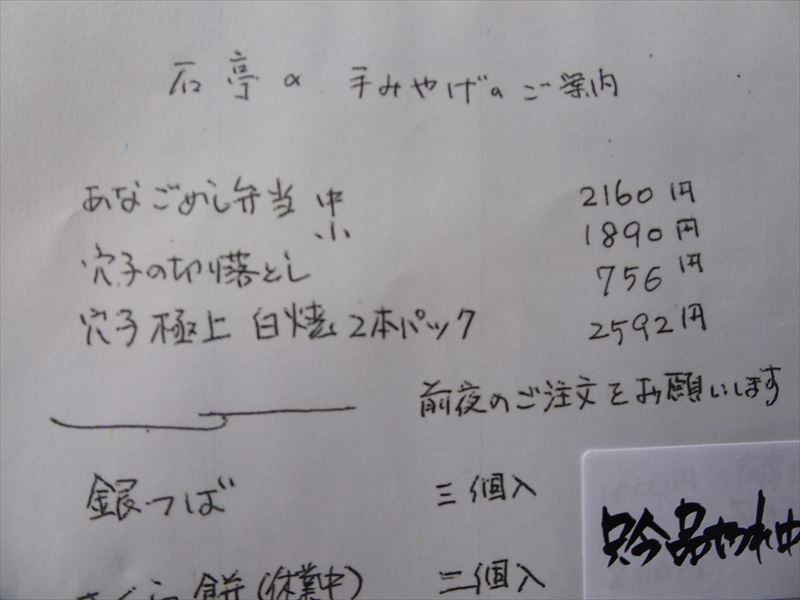 石亭の 手みやげのご案内
あなごめし弁当 中 2160円
小 1890円
穴子の切り落とし 756円
穴子極上 白焼 2本パック 2592円
前夜のご注文をお願いします
銀つば 三個入
さくら餅(休業中) 二個入
只今品切れ中